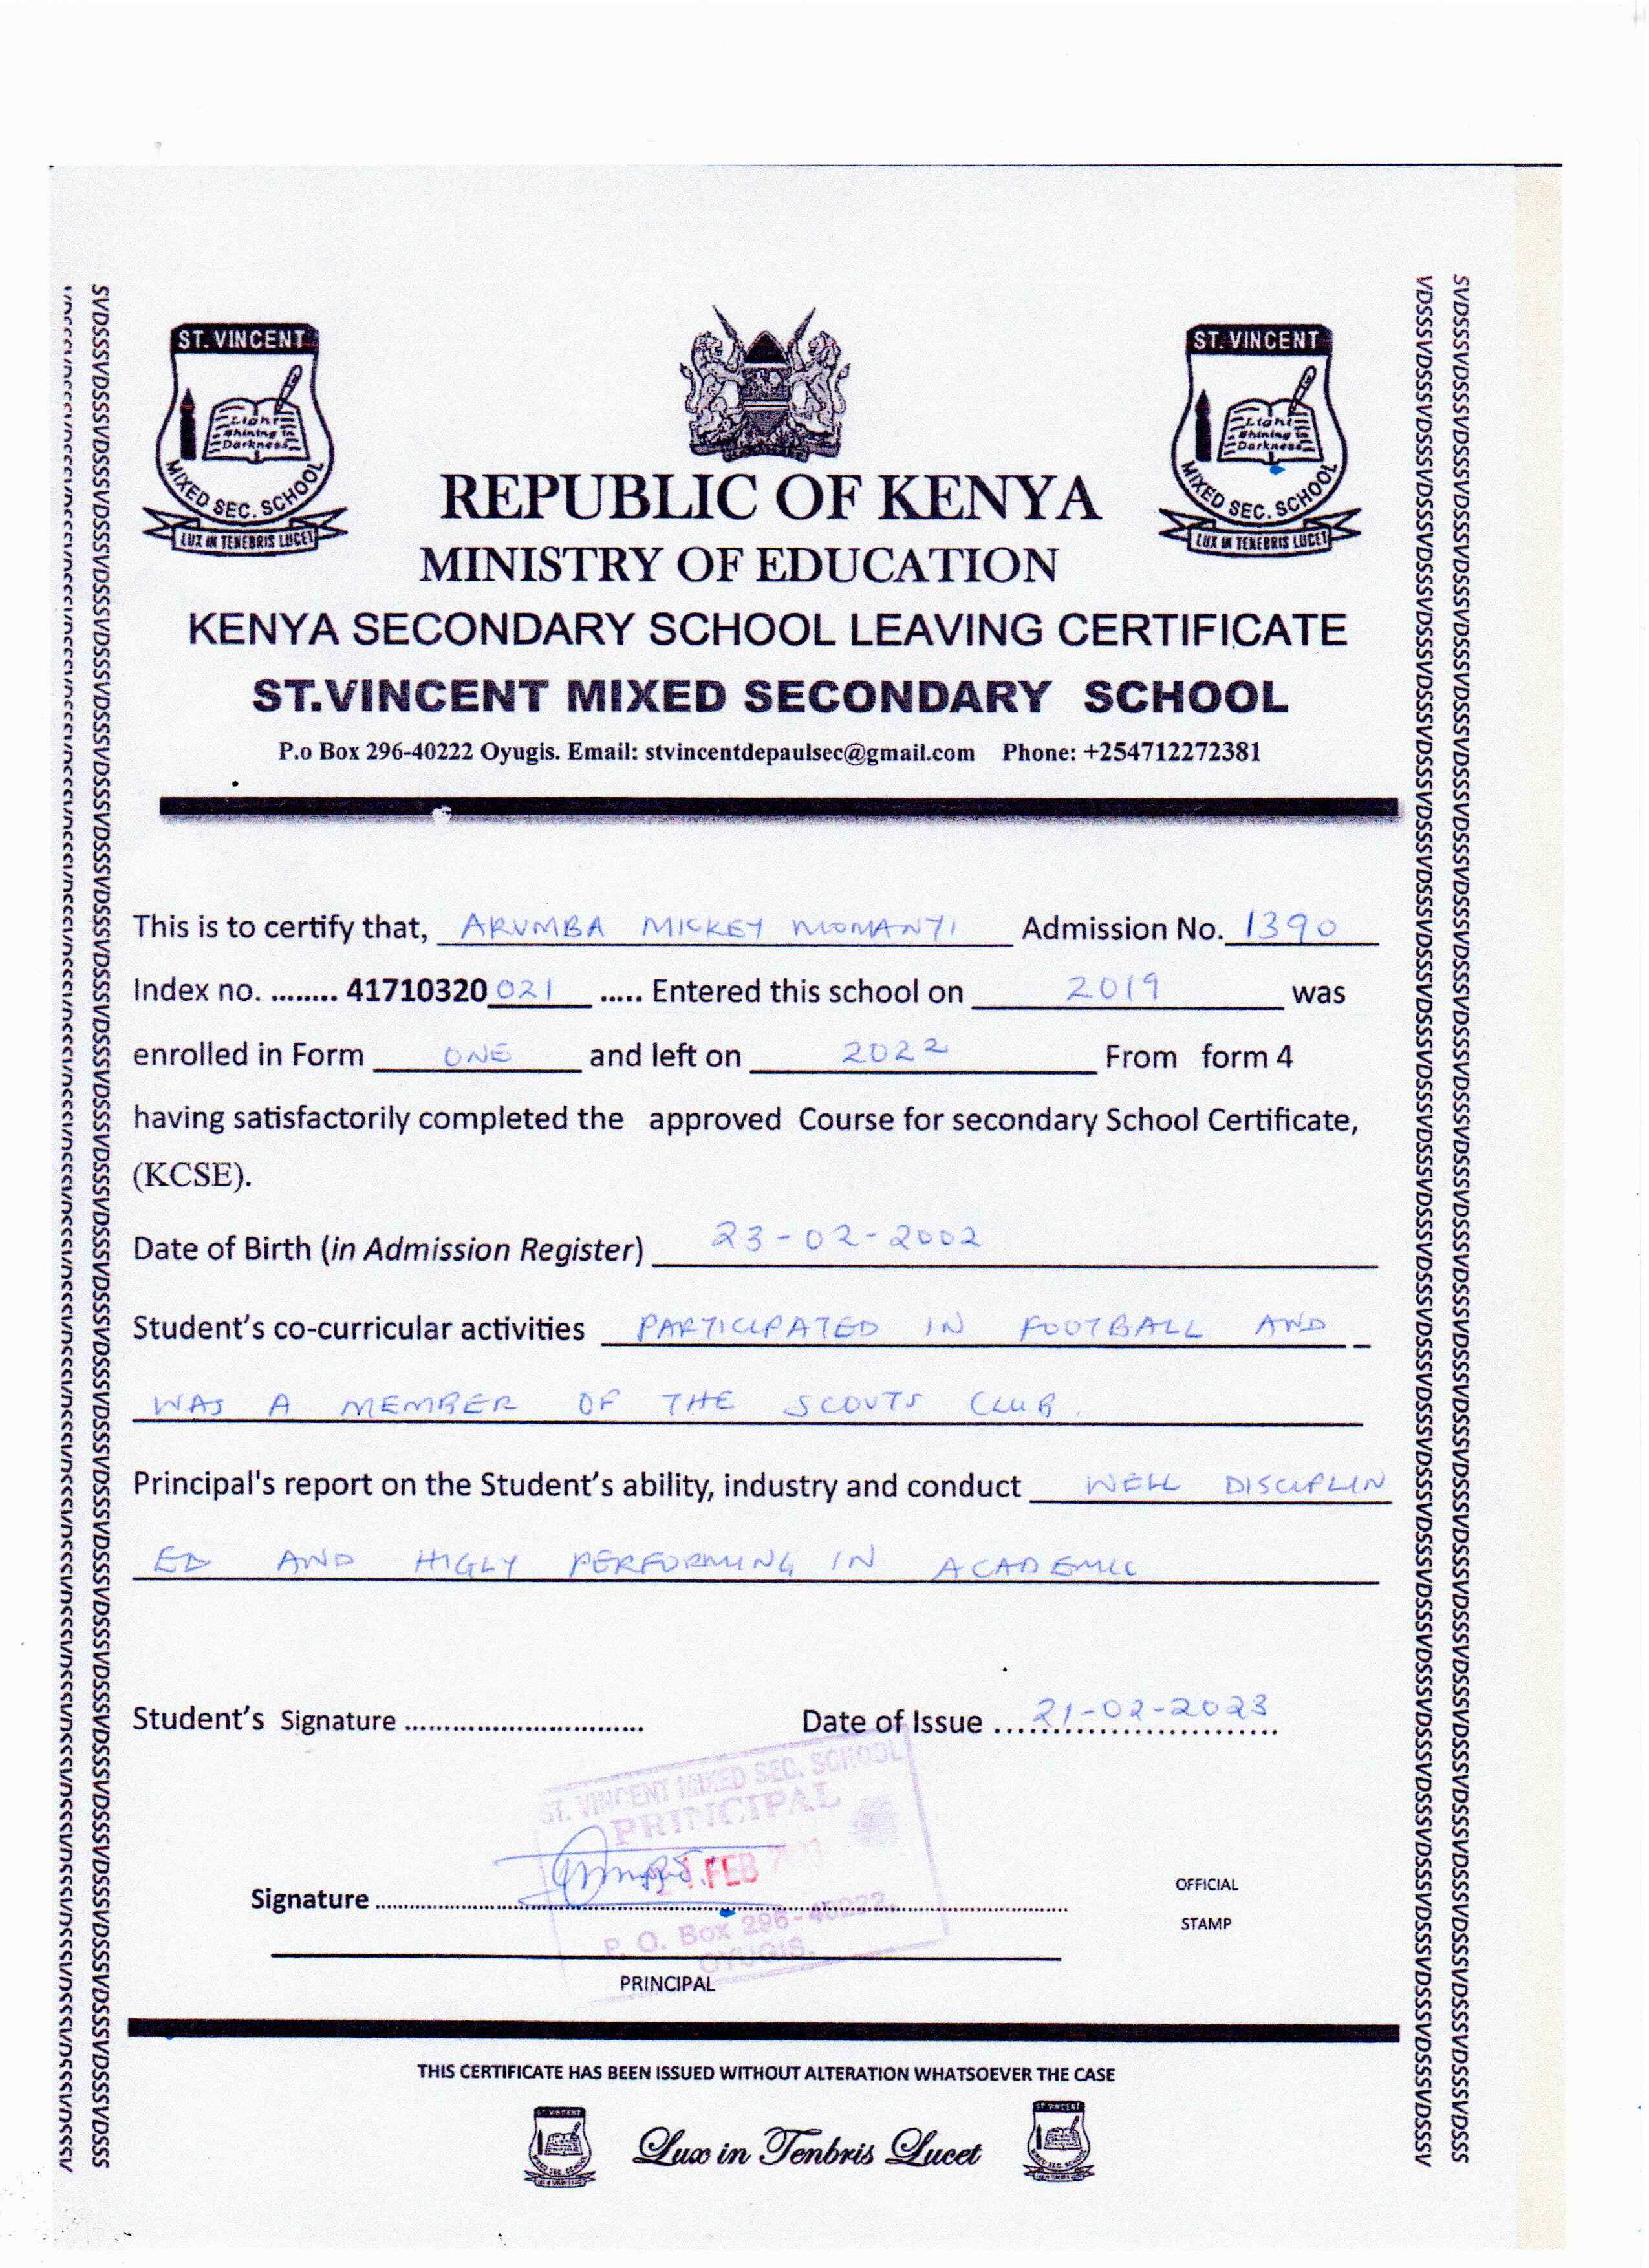 ST. VINCENT
Light
Shining in
Darkness
MIXED SEC. SCHOOL
LUX IN TENEBRIS LUCET
ST. VINCENT
Light
Shining in
Darkness
MIXED SEC. SCHOOL
LUX IN TENEBRIS LUCET
REPUBLIC OF KENYA
MINISTRY OF EDUCATION
KENYA SECONDARY SCHOOL LEAVING CERTIFICATE
ST.VINCENT MIXED SECONDARY SCHOOL
P.o Box 296-40222 Oyugis. Email: stvincentdepaulsec@gmail.com Phone: +254712272381
This is to certify that, ARUMBA MICKEY MOMANYI Admission No. 1390
Index no. ........ 41710320 021 ..... Entered this school on 2019 was
enrolled in Form ONE and left on 2022 From form 4
having satisfactorily completed the approved Course for secondary School Certificate,
(KCSE).
Date of Birth (in Admission Register) 23-02-2002
Student's co-curricular activities PARTICIPATED IN FOOTBALL AND
WAS A MEMBER OF THE SCOUTS CLUB.
Principal's report on the Student's ability, industry and conduct WELL DISCIPLIN
ED AND HIGLY PERFORMING IN ACADEMIC
Student's Signature .............................. Date of Issue 21-02-2023
ST. VINCENT MIXED SEC. SCHOOL
PRINCIPAL
21 FEB
Signature
P. O. Box 296-40222,
OYUGIS.
OFFICIAL
STAMP
PRINCIPAL
THIS CERTIFICATE HAS BEEN ISSUED WITHOUT ALTERATION WHATSOEVER THE CASE
Lux in Tenbris Lucet